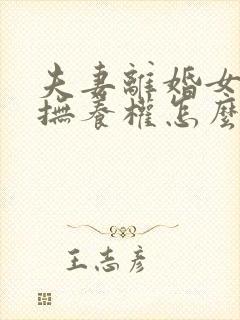 夫妻離婚女
撫養權怎麼
王志彥